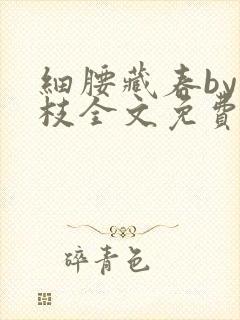 細腰藏春by
枝全文免費
碎青色